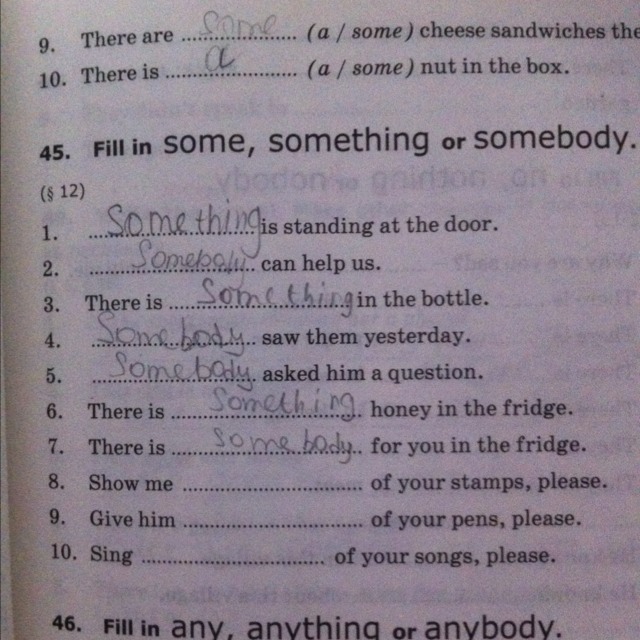 9. There are ....some.... (a / some) cheese sandwiches the
10. There is ....a.... (a / some) nut in the box.
45. Fill in some, something or somebody.
(§ 12)
1. Something is standing at the door.
2. Somebody can help us.
3. There is Something in the bottle.
4. Somebody saw them yesterday.
5. Somebody asked him a question.
6. There is something honey in the fridge.
7. There is somebody for you in the fridge.
8. Show me .................... of your stamps, please.
9. Give him .................... of your pens, please.
10. Sing .................... of your songs, please.
46. Fill in any, anything or anybody.